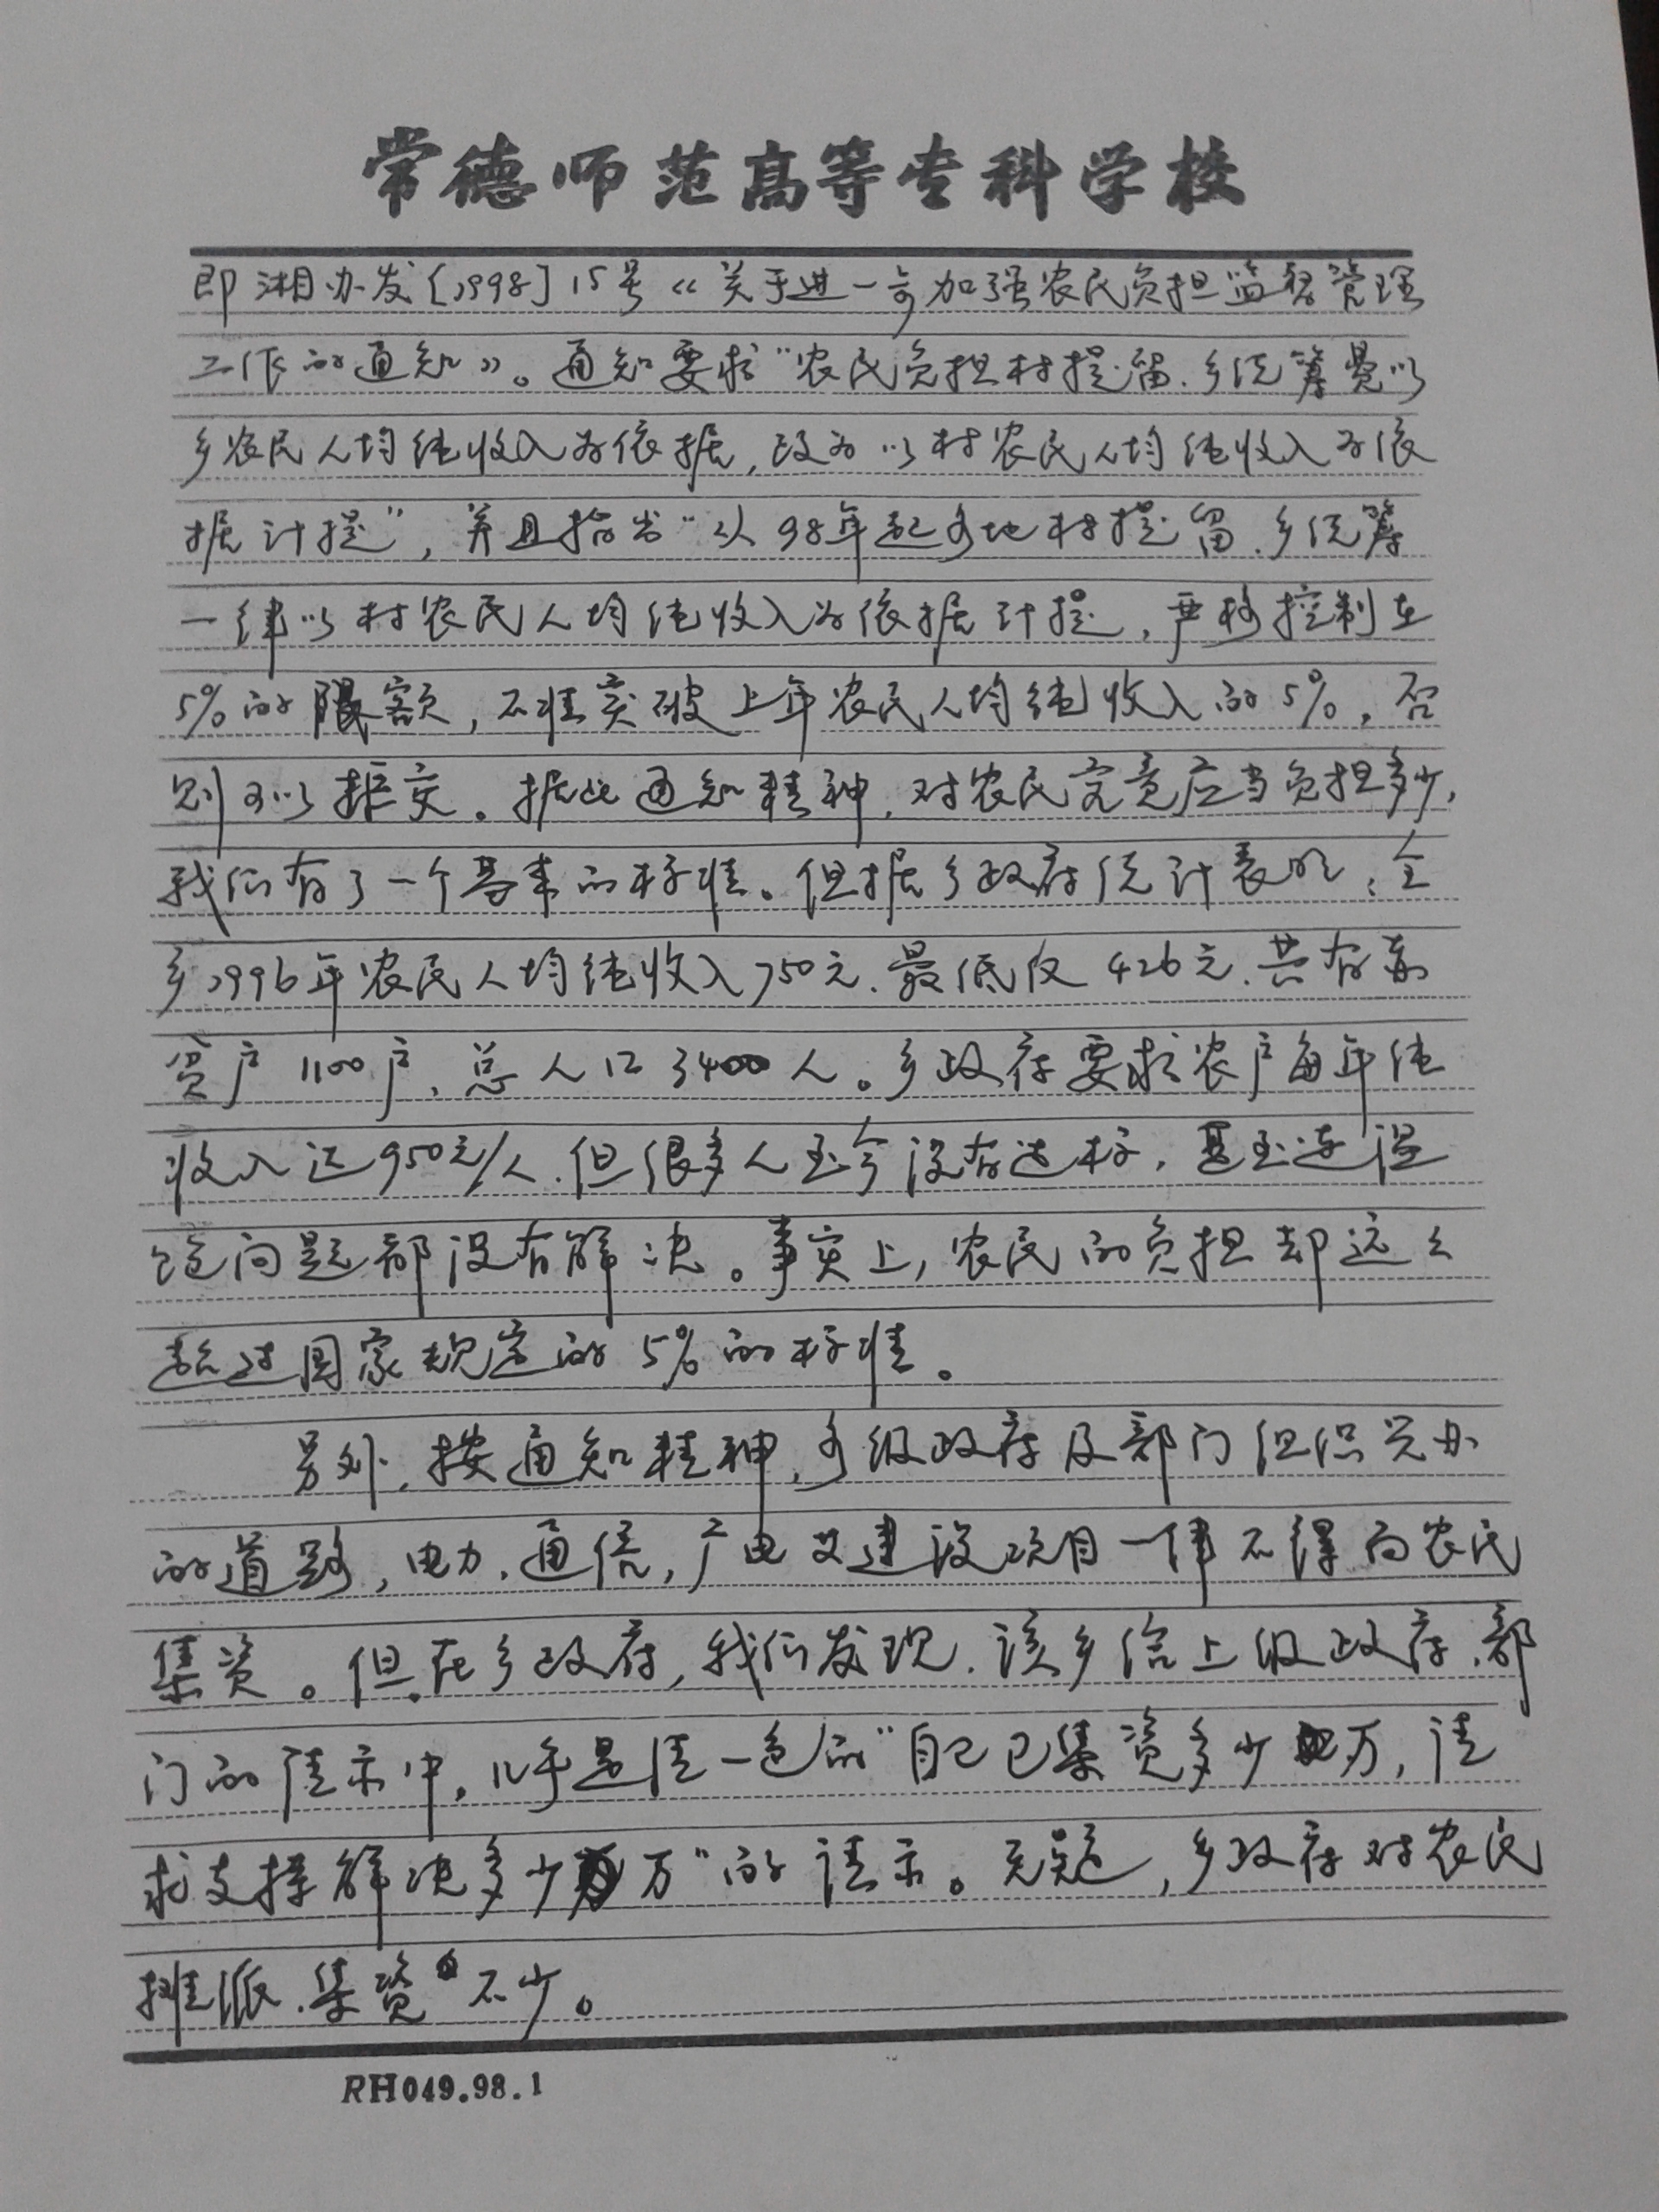 常德师范高等专科学校
即湘办发[1998]15号《关于进一步加强农民负担监督管理
工作的通知》。通知要求"农民负担村提留、乡统筹费以
乡农民人均纯收入为依据,改为以村农民人均纯收入为依
据计提",并且指出"从98年起各地村提留、乡统筹
一律以村农民人均纯收入为依据计提,严格控制在
5%的限额,不准突破上年农民人均纯收入的5%,否
则可以拒交。据此通知精神,对农民究竟应当负担多少,
我们有了一个基本的标准。但据乡政府统计表明,全
乡1996年农民人均纯收入750元、最低仅426元、共有
贫户1100户、总人口3400人。乡政府要求农户每年纯
收入达950元/人、但很多人至今没有达标,甚至连温
饱问题都没有解决。事实上,农民的负担却远远
超过国家规定的5%的标准。
另外,按通知精神,各级政府及部门组织兴办
的道路,电力、通信,广电等建设项目一律不得向农民
集资。但在乡政府,我们发现、该乡给上级政府、部
门的请示中,几乎是清一色的"自己已集资多少万,请
求支持解决多少万"的请示。无疑,乡政府对农民
摊派、集资不少。
RH049.98.1